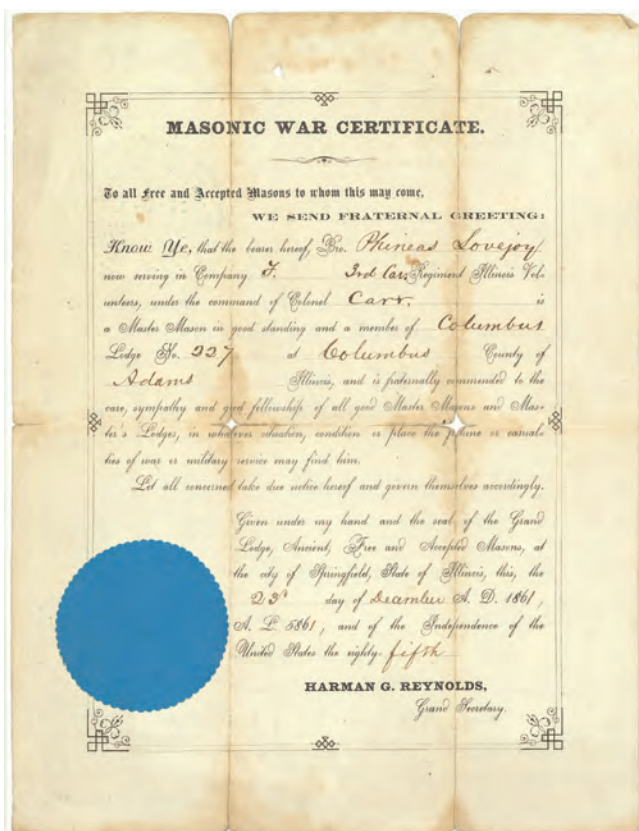 MASONIC WAR CERTIFICATE.
To all Free and Accepted Masons to whom this may come,
WE SEND FRATERNAL GREETING:
Know Ye, that the bearer hereof, Bro. Phineas Lovejoy
now serving in Company F. 3rd Cav. Regiment Illinois Vol-
unteers, under the command of Colonel Carr. is
a Master Mason in good standing and a member of Columbus
Lodge No. 227 at Columbus County of
Adams Illinois, and is fraternally commended to the
care, sympathy and good fellowship of all good Master Masons and Mas-
ter's Lodges, in whatever situation, condition or place the fortune or casual-
ties of war or military service may find him.
Let all concerned take due notice hereof and govern themselves accordingly.
Given under my hand and the seal of the Grand
Lodge, Ancient, Free and Accepted Masons, at
the city of Springfield, State of Illinois, this, the
23d day of December A. D. 1861,
A. L. 5861, and of the Independence of the
United States the eighty-fifth
HARMAN G. REYNOLDS,
Grand Secretary.